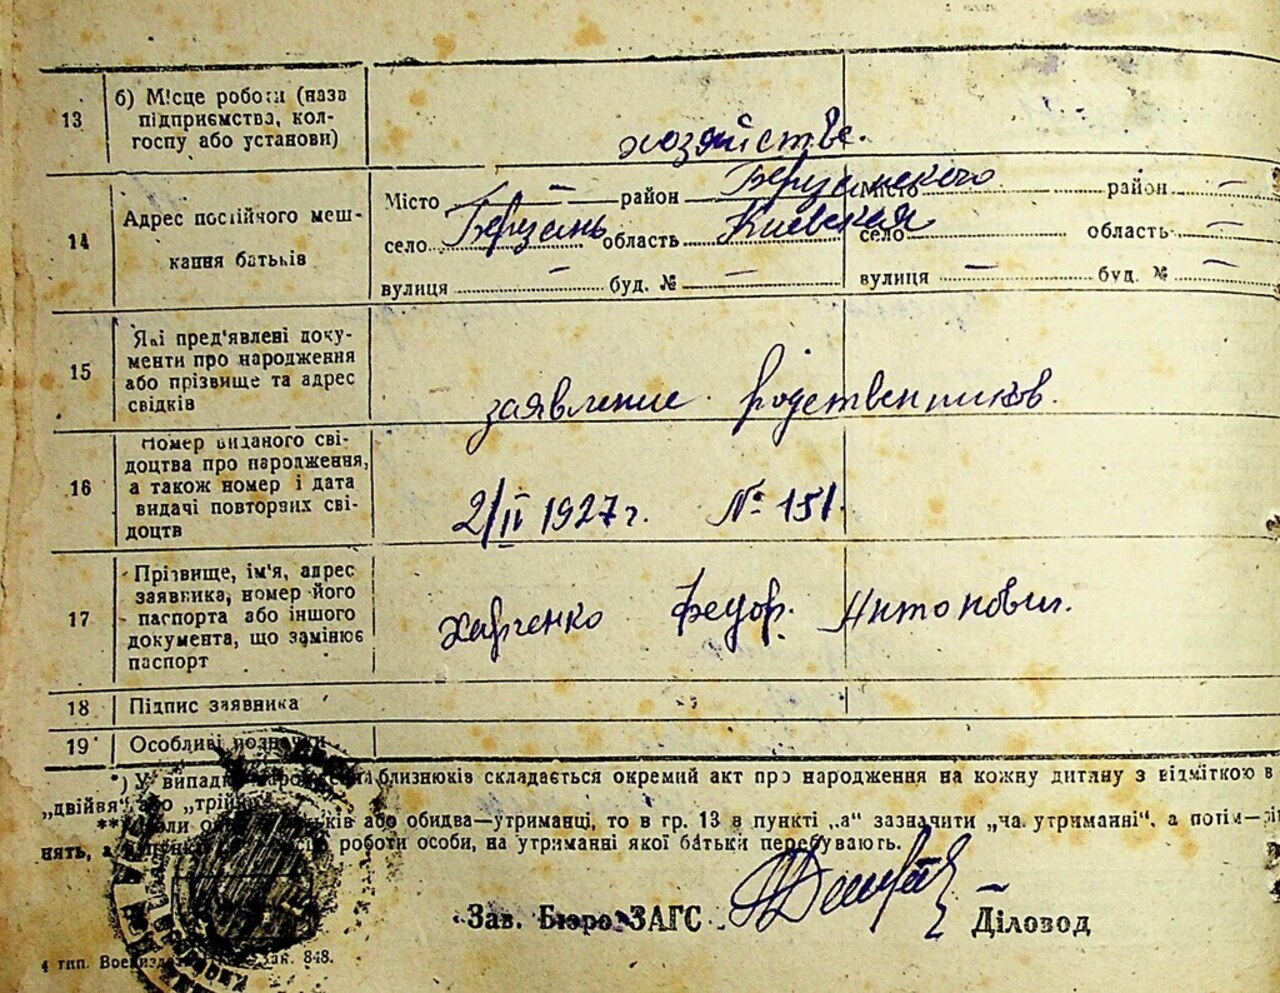 13
б) Місце роботи (назва
підприємства, кол-
госпу або установи)
хозяйстве.
14
Адрес постійного меш-
кання батьків
Місто — район Березанского
село Березань область Киевская
вулиця — буд. № —
Місто район —
село область —
вулиця — буд. № —
15
Які пред'явлені доку-
менти про народження
або прізвище та адрес
свідків
заявление родственников.
16
Номер виданого сві-
доцтва про народження,
а також номер і дата
видачі повторних сві-
доцтв
2/II 1927 г. № 151.
17
Прізвище, ім'я, адрес
заявника, номер його
паспорта або іншого
документа, що замінює
паспорт
Харченко Федор. Антонович.
18
Підпис заявника
19
Особливі позначки
*) У випадку близнюків складається окремий акт про народження на кожну дитину з відміткою
„двійня“ або „трійня“
** Коли або обидва—утриманці, то в гр. 13 в пункті „а“ зазначити „на утриманні“, а потім
роботи особи, на утриманні якої батьки перебувають.
Зав. Бюро ЗАГС Діловод —
4 тип. Воениздата Зак. 848.